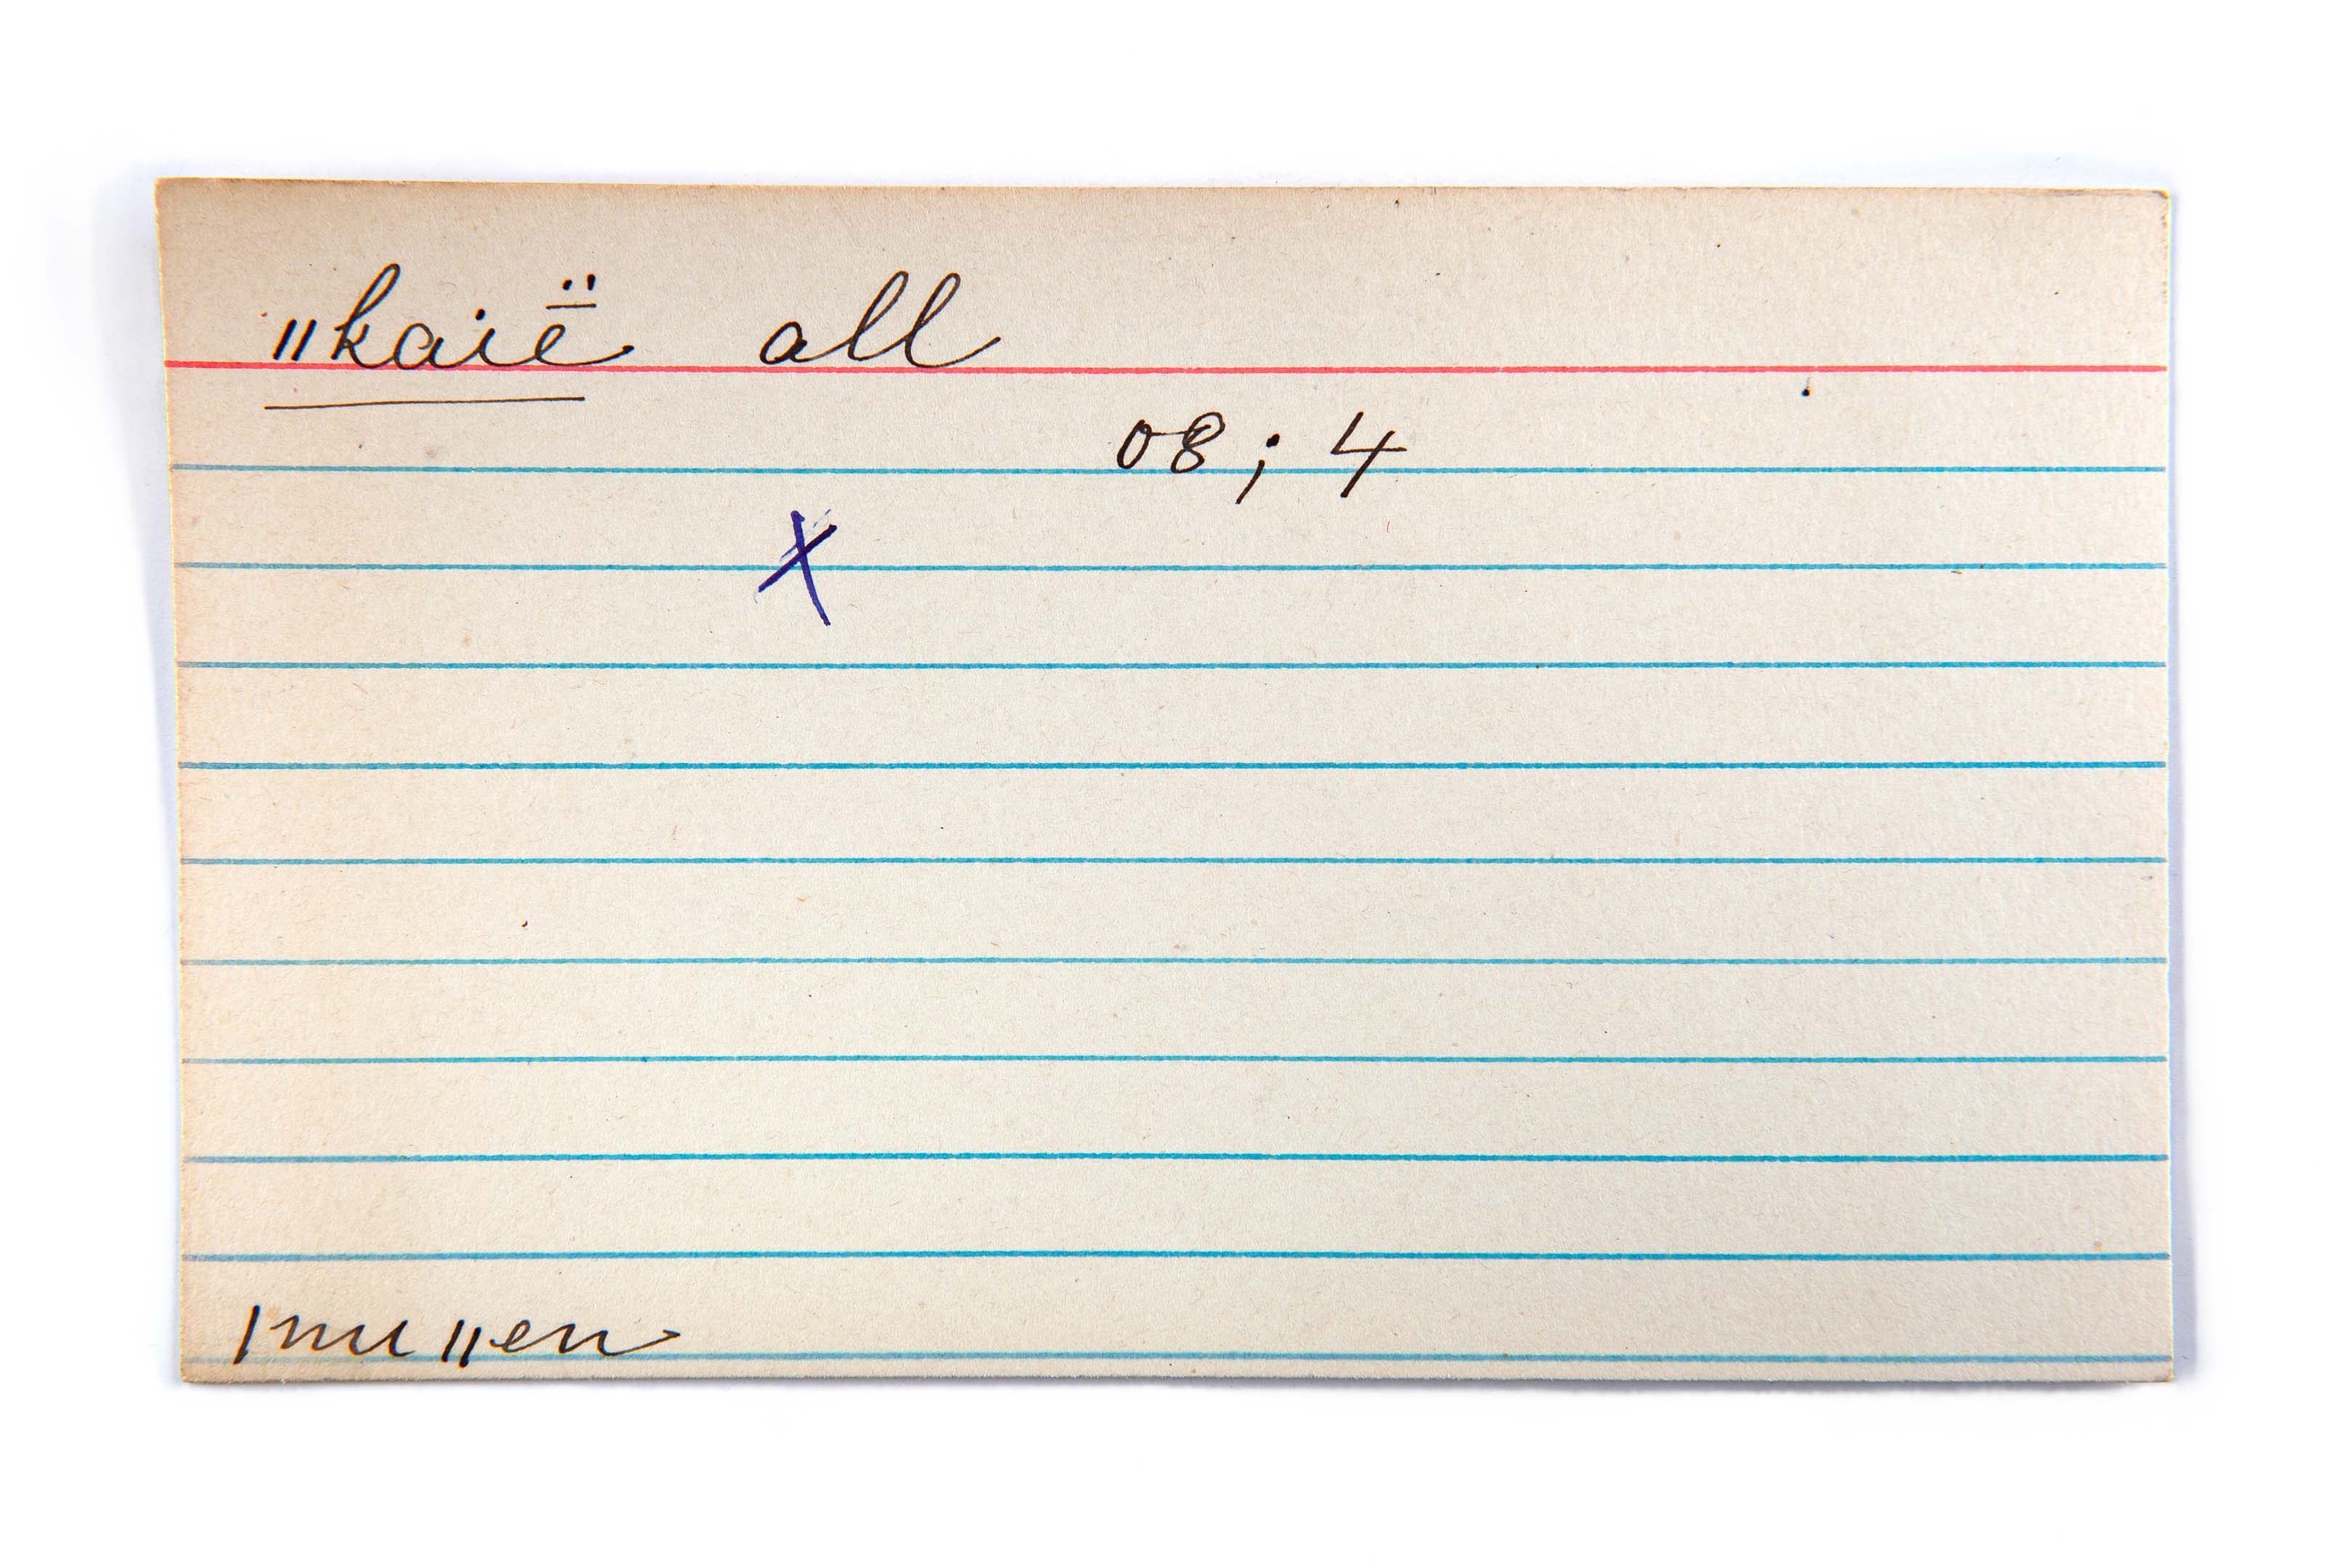 ǁkaië̄ all
08; 4
X
ǀnu ǁen